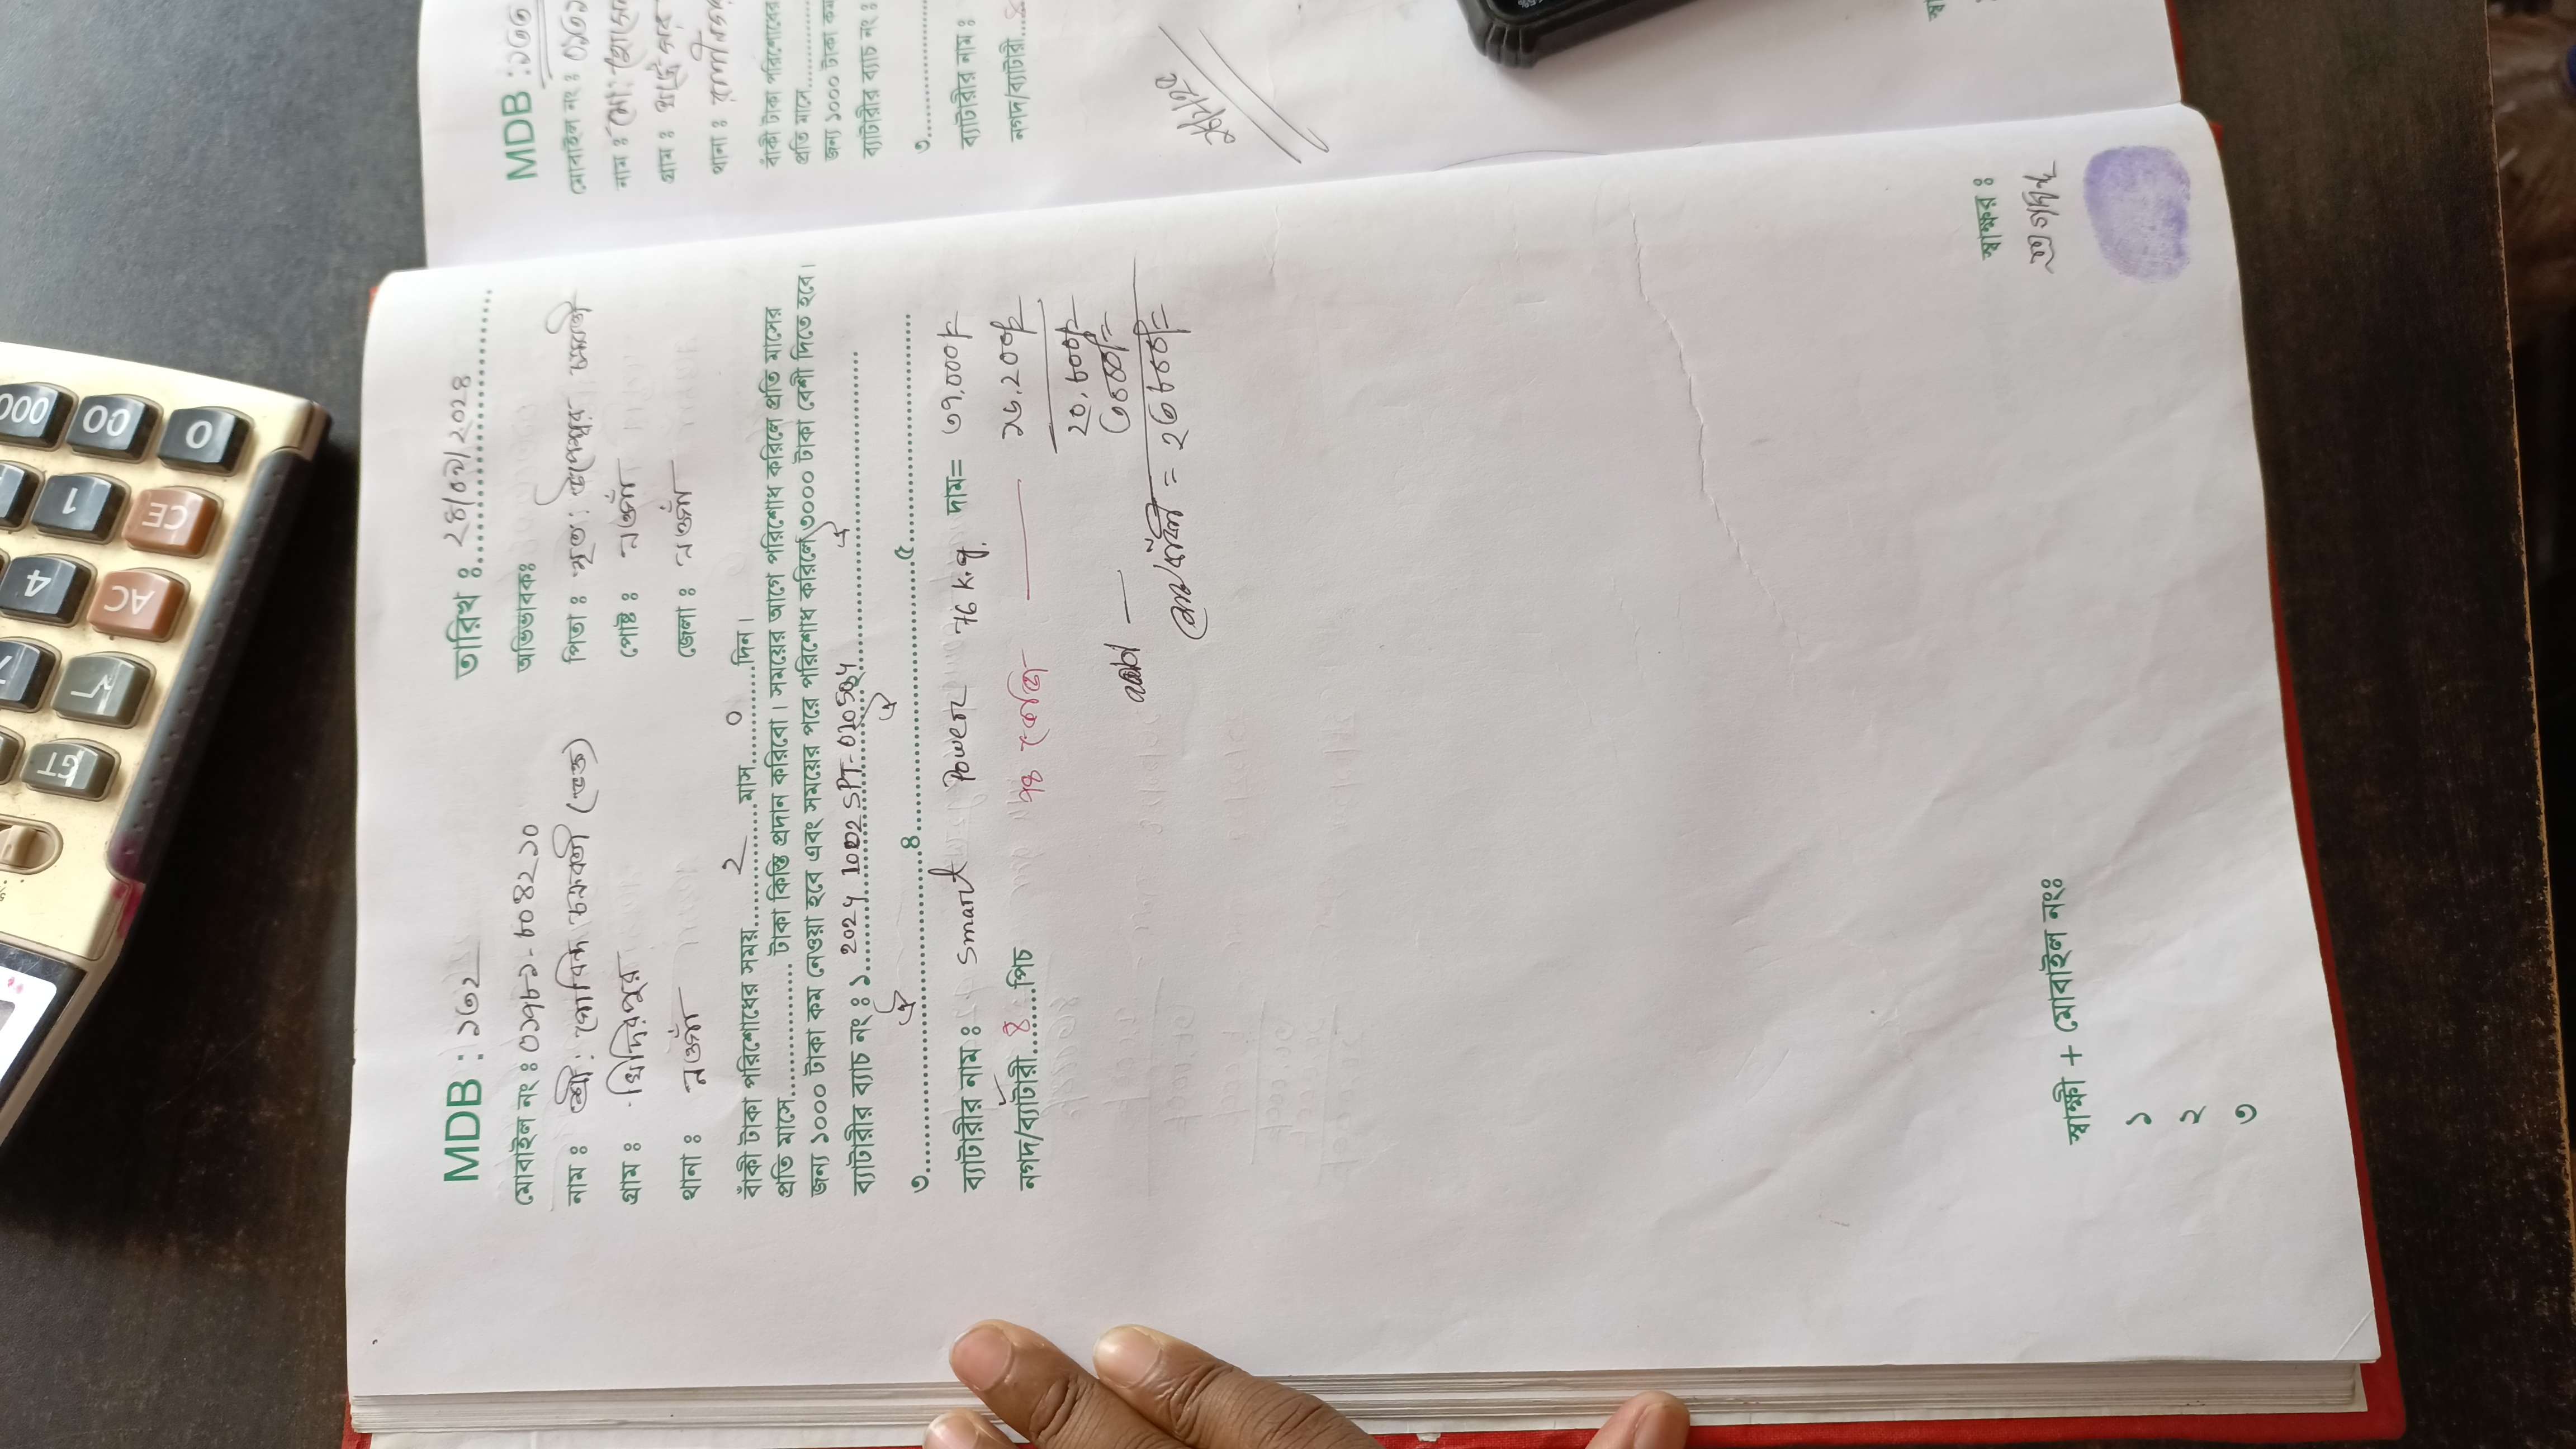 MDB : ১৩২
তারিখ : ২৪/০৯/২০২৪
মোবাইল নং : ০১৭৮১-৮০৪২১০
অভিভাবকঃ
নাম : শ্রী: গোবিন্দ চক্রবর্তী (ভক্ত)
পিতা : মৃত:
গ্রাম : খিদিরপুর
পোষ্ট : নওগাঁ
থানা : নওগাঁ
জেলা : নওগাঁ
বাঁকী টাকা পরিশোধের সময়......২......মাস......০......দিন।
প্রতি মাসে.................... টাকা কিস্তি প্রদান করিবো। সময়ের আগে পরিশোধ করিলে প্রতি মাসের
জন্য ১০০০ টাকা কম নেওয়া হবে এবং সময়ের পরে পরিশোধ করিলে ৩০০০ টাকা বেশী দিতে হবে।
ব্যাটারীর ব্যাচ নং : ১
৩....................৪....................৫....................
ব্যাটারীর নাম : Smart Power 76 K.g. দাম= ৩৭,০০০/-
নগদ/ব্যাটারী...৪...পিচ ৭৪ কেজি — ১৬,২০০/-
২০,৮০০/-
৩০০০/=
= ২৩৮০০/=
স্বাক্ষর :
স্বাক্ষী + মোবাইল নংঃ
১
২
৩
MDB : ১৩৩
মোবাইল নং :
নাম : মো:
গ্রাম :
থানা :
বাঁকী টাকা পরিশোধের
প্রতি মাসে
জন্য ১০০০ টাকা কম
ব্যাটারীর ব্যাচ নং :
৩
ব্যাটারীর নাম :
নগদ/ব্যাটারী...৪
000
00
0
1
CE
4
AC
7
√
GT